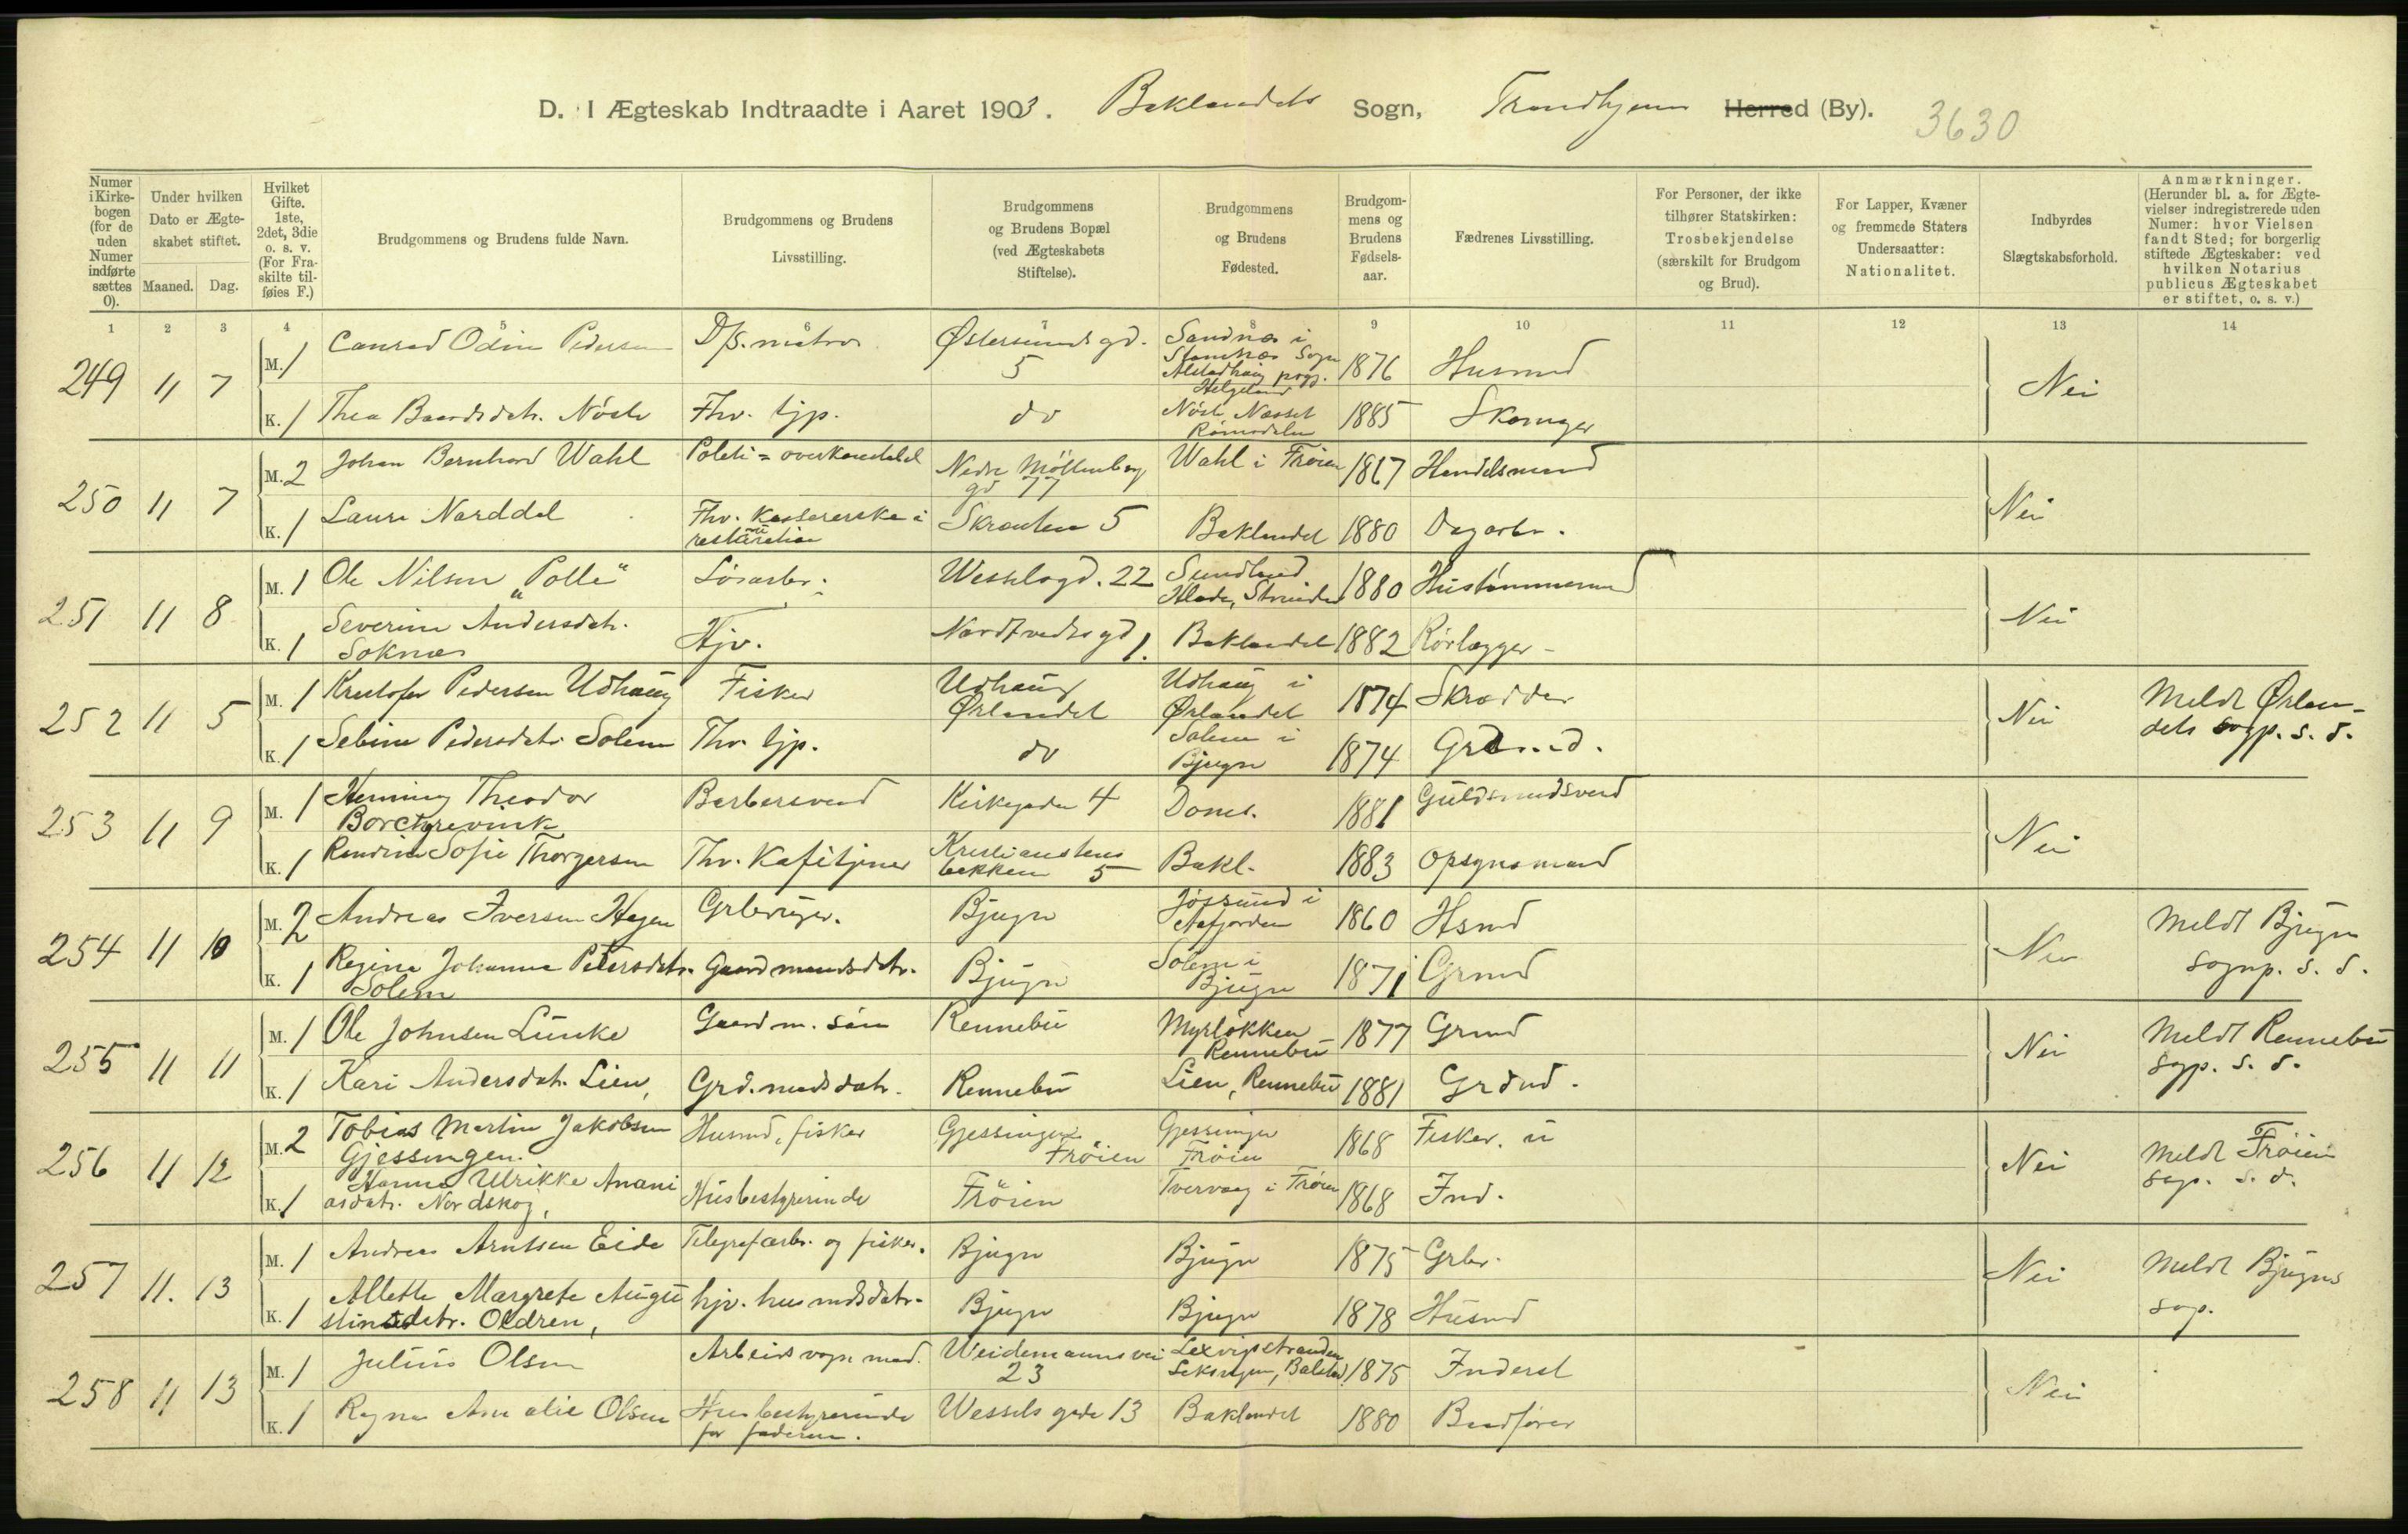 D. I Ægteskab Indtraadte i Aaret 1903. Baklandets Sogn, Trondhjem Herred (By). 3630
Numer i Kirke-bogen (for de uden Numer indførte sættes 0).
Under hvilken Dato er Ægte-skabet stiftet.
Maaned. Dag.
Hvilket Gifte. 1ste, 2det, 3die o. s. v. (For Fra-skilte til-føies F.)
Brudgommens og Brudens fulde Navn.
Brudgommens og Brudens Livsstilling.
Brudgommens og Brudens Bopæl (ved Ægteskabets Stiftelse).
Brudgommens og Brudens Fødested.
Brudgom-mens og Brudens Fødsels-aar.
Fædrenes Livsstilling.
For Personer, der ikke tilhører Statskirken: Trosbekjendelse (særskilt for Brudgom og Brud).
For Lapper, Kvæner og fremmede Staters Undersaatter: Nationalitet.
Indbyrdes Slægtskabsforhold.
Anmærkninger. (Herunder bl. a. for Ægte-vielser indregistrerede uden Numer: hvor Vielsen fandt Sted; for borgerlig stiftede Ægteskaber: ved hvilken Notarius publicus Ægteskabet er stiftet, o. s. v.)
1 2 3 4 5 6 7 8 9 10 11 12 13 14
249 11 7 M. 1 Conrad Odin Pedersen D/s. matros Østersundsgd. 5 Sandnæs i Stamnæs Sogn Alstadhaug prgj. Helgeland 1876 Husmd Nei
K. 1 Thea Baardsdatr. Nöste Fhv. tjp. do Nöste Næsset Romsdalen 1885 Skomager
250 11 7 M. 2 Johan Bernhard Wahl Politi=overkonstabel Nedre Möllenberg gd 77 Wahl i Fröien 1867 Handelsmand Nei
K. 1 Laura Narddal Fhv. Kassererske i restauration Skraaten 5 Baklandet 1880 Dagarbr.
251 11 8 M. 1 Ole Nilsen "Polle" Lösarbr. Wesselsgd. 22 Sundland Hlade, Strinden 1880 Hustömmermd Nei
K. 1 Severine Andersdatr. Soknæs Hjv. Nordtvedtsgd 1. Baklandet 1882 Rörlægger
252 11 5 M. 1 Kristofer Pedersen Udhaug Fisker Udhaug Ørlandet Udhaug i Ørlandet 1874 Skrædder Nei Meldt Ørlan-dets sogp. s. d.
K. 1 Sebine Pedersdatr Solem Fhv. tjp. do Solem i Bjugn 1874 Grdmd.
253 11 9 M. 1 Henning Theodor Borchgrevink Barbersvend Kirkegaden 4 Domk. 1881 Guldsmedsvend Nei
K. 1 Randine Sofie Thorgersen Fhv. Kafétjener Kristianstens bakken 5 Bakl. 1883 Opsynsmand
254 11 10 M. 2 Andreas Iversen Hagen Grbruger. Bjugn Jössund i Aafjorden 1860 Hsmd Nei Meldt Bjugn sognp. s. d.
K. 1 Regine Johanna Petersdatr. Solem Gaardmandsdatr. Bjugn Solem i Bjugn 1871 Grmd
255 11 11 M. 1 Ole Johnsen Lunke Gaardm. sön Rennebu Myrlökken Rennebu 1877 Grmd Nei Meldt Rennebu sgp. s. d.
K. 1 Kari Andersdatr. Lien, Grd.mdsdatr. Rennebu Lien, Rennebu 1881 Grdmd.
256 11 12 M. 2 Tobias Martin Jakobsen Gjessingen. Husmd, fisker Gjessingen Fröien Gjessingen Fröien 1868 Fisker. Nei Meldt Fröien sgp. s. d.
K. 1 Hanna Ulrikke Anani asdatr. Nordskog, Husbestyrerinde Fröien Tvervaag i Fröien 1868 Ind.
257 11. 13 M. 1 Andreas Arntsen Eide Telegrafarbr. og fisker. Bjugn Bjugn 1875 Grbr. Nei Meldt Bjugns sgp.
K. 1 Allette Margrete Augu stinsdatr. Oldren, hjv. husmdsdatr. Bjugn Bjugn 1878 Husmd
258 11 13 M. 1 Julius Olsen Arbeidsvognmd. Weidemannsvei 23 Lexvigstranden Leksvigen, 1875 Inderst Nei
K. 1 Ragna Amalie Olsen Husbestyrerinde for faderen. Wesselsgade 13 Baklandet 1880 Baadfører